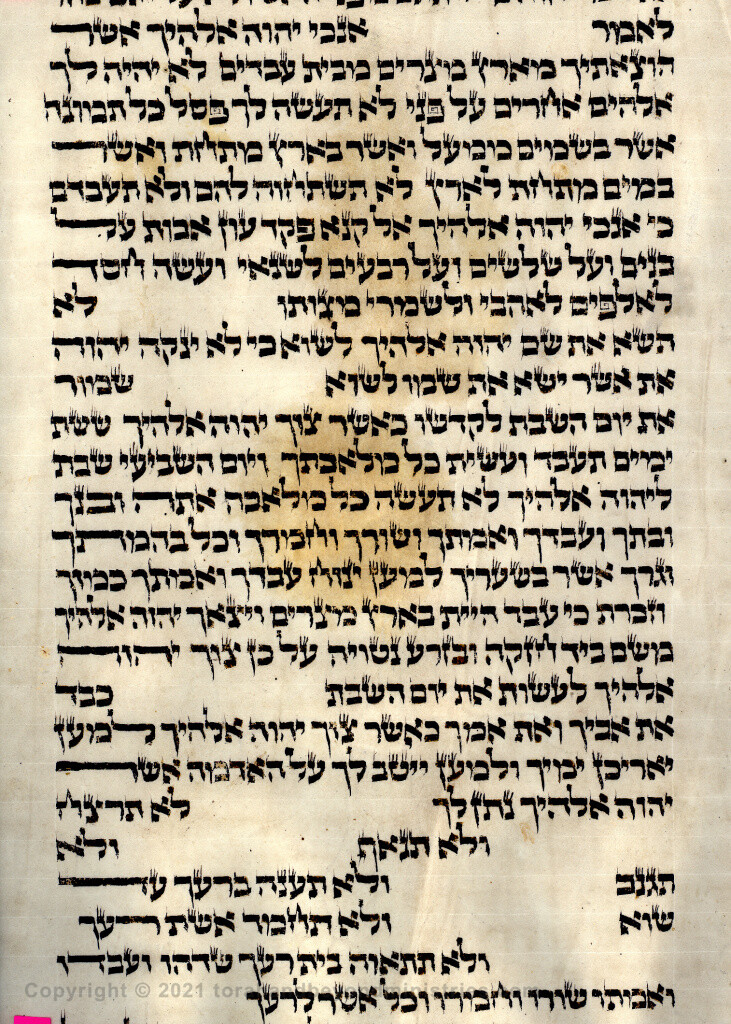 לאמר אנכי יהוה אלהיך אשר
הוצאתיך מארץ מצרים מבית עבדים לא יהיה לך
אלהים אחרים על פני לא תעשה לך פסל כל תמונה
אשר בשמים ממעל ואשר בארץ מתחת ואשר
במים מתחת לארץ לא תשתחוה להם ולא תעבדם
כי אנכי יהוה אלהיך אל קנא פקד עון אבות על
בנים ועל שלשים ועל רבעים לשנאי ועשה חסד
לאלפים לאהבי ולשמרי מצותו לא
תשא את שם יהוה אלהיך לשוא כי לא ינקה יהוה
את אשר ישא את שמו לשוא שמור
את יום השבת לקדשו כאשר צוך יהוה אלהיך ששת
ימים תעבד ועשית כל מלאכתך ויום השביעי שבת
ליהוה אלהיך לא תעשה כל מלאכה אתה ובנך
ובתך ועבדך ואמתך ושורך וחמרך וכל בהמתך
וגרך אשר בשעריך למען ינוח עבדך ואמתך כמוך
וזכרת כי עבד היית בארץ מצרים ויצאך יהוה אלהיך
משם ביד חזקה ובזרע נטויה על כן צוך יהוה
אלהיך לעשות את יום השבת כבד
את אביך ואת אמך כאשר צוך יהוה אלהיך למען
יאריכן ימיך ולמען ייטב לך על האדמה אשר
יהוה אלהיך נתן לך לא תרצח
ולא תנאף ולא
תגנב ולא תענה ברעך עד
שוא ולא תחמד אשת רעך
ולא תתאוה בית רעך שדהו ועבדו
ואמתו שורו וחמרו וכל אשר לרעך
Copyright © 2021 torahandbeyondministries.com